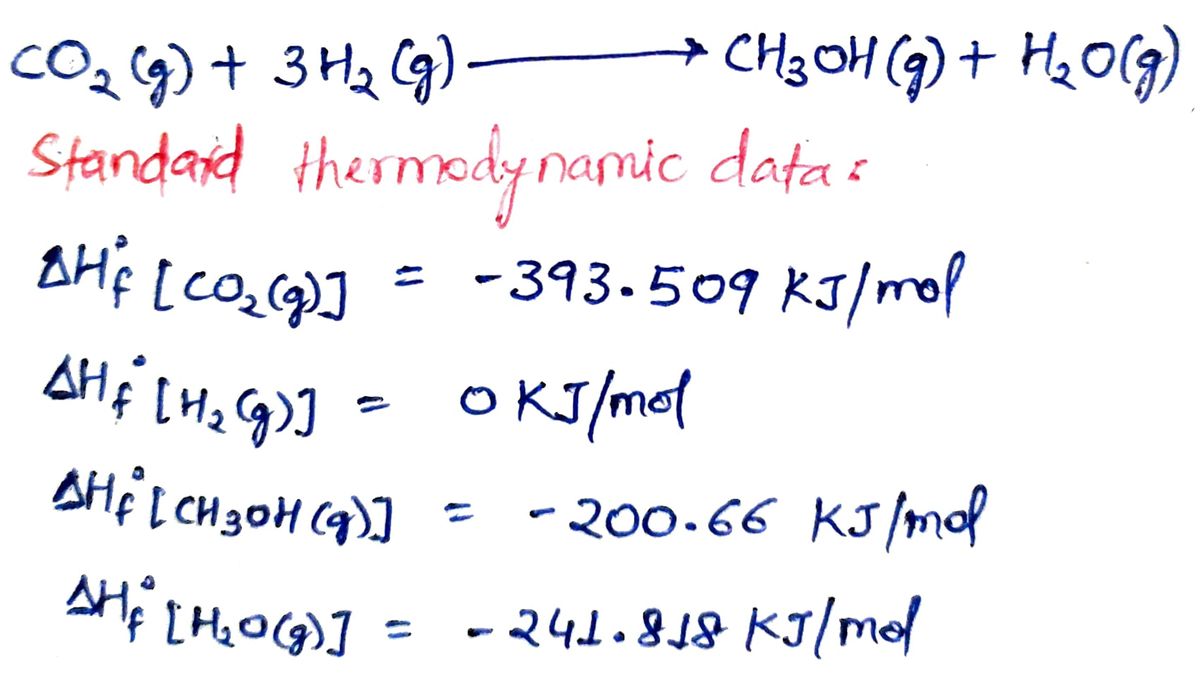 CO₂ (g) + 3H₂ (g) ⟶ CH₃OH (g) + H₂O(g)
Standard thermodynamic data:
ΔH°f [CO₂(g)] = -393.509 KJ/mol
ΔH°f [H₂(g)] = 0 KJ/mol
ΔH°f [CH₃OH (g)] = -200.66 KJ/mol
ΔH°f [H₂O(g)] = -241.818 KJ/mol